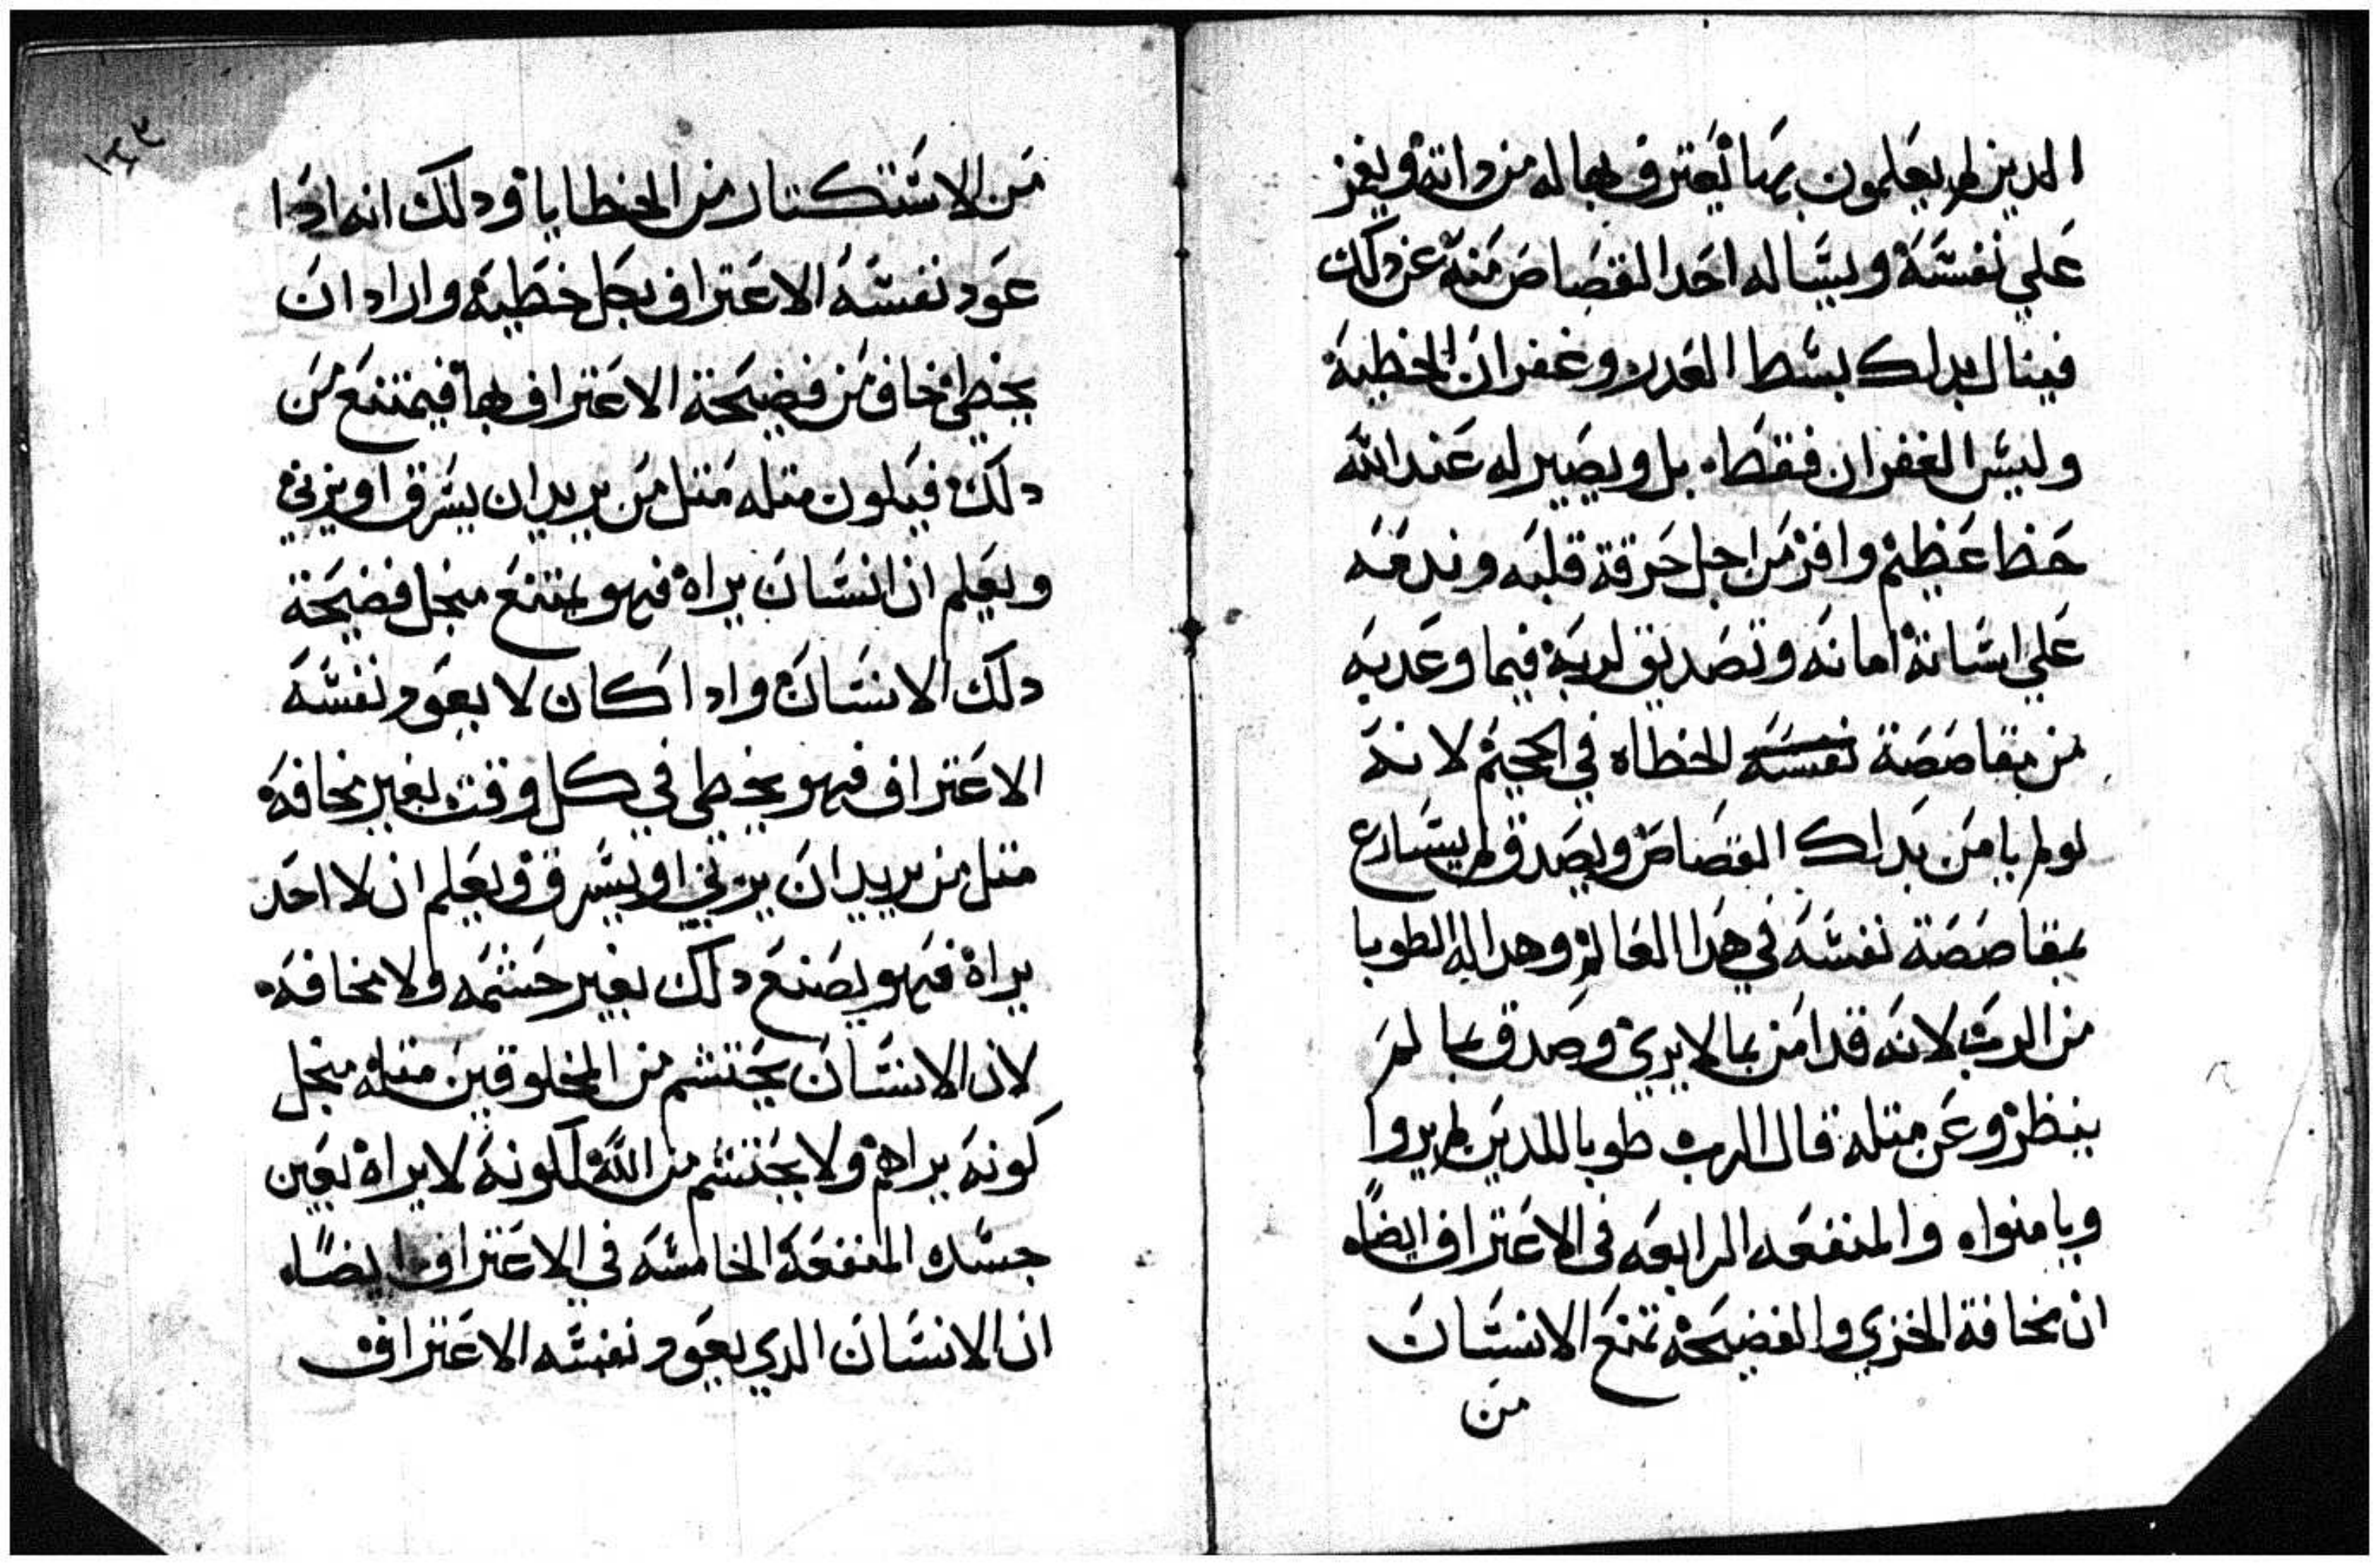 الدين لم يعلمون بها يعترف بها له من داته ويغز
علي نفسه ويساله اخد القصاص منه عن دلك
فينال بدلك بسط العدر وغفران الخطية
وليس الغفران فقط بل ويصير له عند الله
حظا عظيم وافر من اجل حرقة قلبه وندمه
علي اساته امانه وتصديق لربه فيما وعد به
من مقاصصة نفسه للخطاه في الجحيم لانه
لو لم يامن بدلك القصاص ويصدق لم يسارع
بمقاصصة نفسه في هدا العالم وهدا له الطوبا
من الرب لانه قد امن بما لا يري وصدق بما لم
ينظر وعن متله قال الرب طوبا للدين لم يروا
ويامنوا والمنفعه الرابعه في الاعتراف ايضاً
ان مخافة الخزي والفضيحة تمنع الانسان
من
١٤٣
من الاستكتار من الخطايا ودلك انه ادا
عود نفسه الاعتراف بكل خطية واراد ان
يخطي خاف من فضيحة الاعتراف بها فيمتنع من
دلك فيكون متله متل من يريد ان يسرق او يزني
ويعلم ان انسان يراه فهو يمتنع منجل فضيحة
دلك الانسان وادا كان لا يعود نفسه
الاعتراف فهو يخطي في كل وقت بغير مخافة
متل من يريد ان يزني او يسرق ويعلم ان لا احد
يراه فهو يصنع دلك بغير حشمه ولا مخافه
لان الانسان يحتشم من المخلوقين متله منجل
كونه يراهم ولا يحتشم من الله لكونه لا يراه بعين
جسده المنفعة الخامسه في الاعتراف ايضاً
ان الانسان الدي يعود نفسه الاعتراف